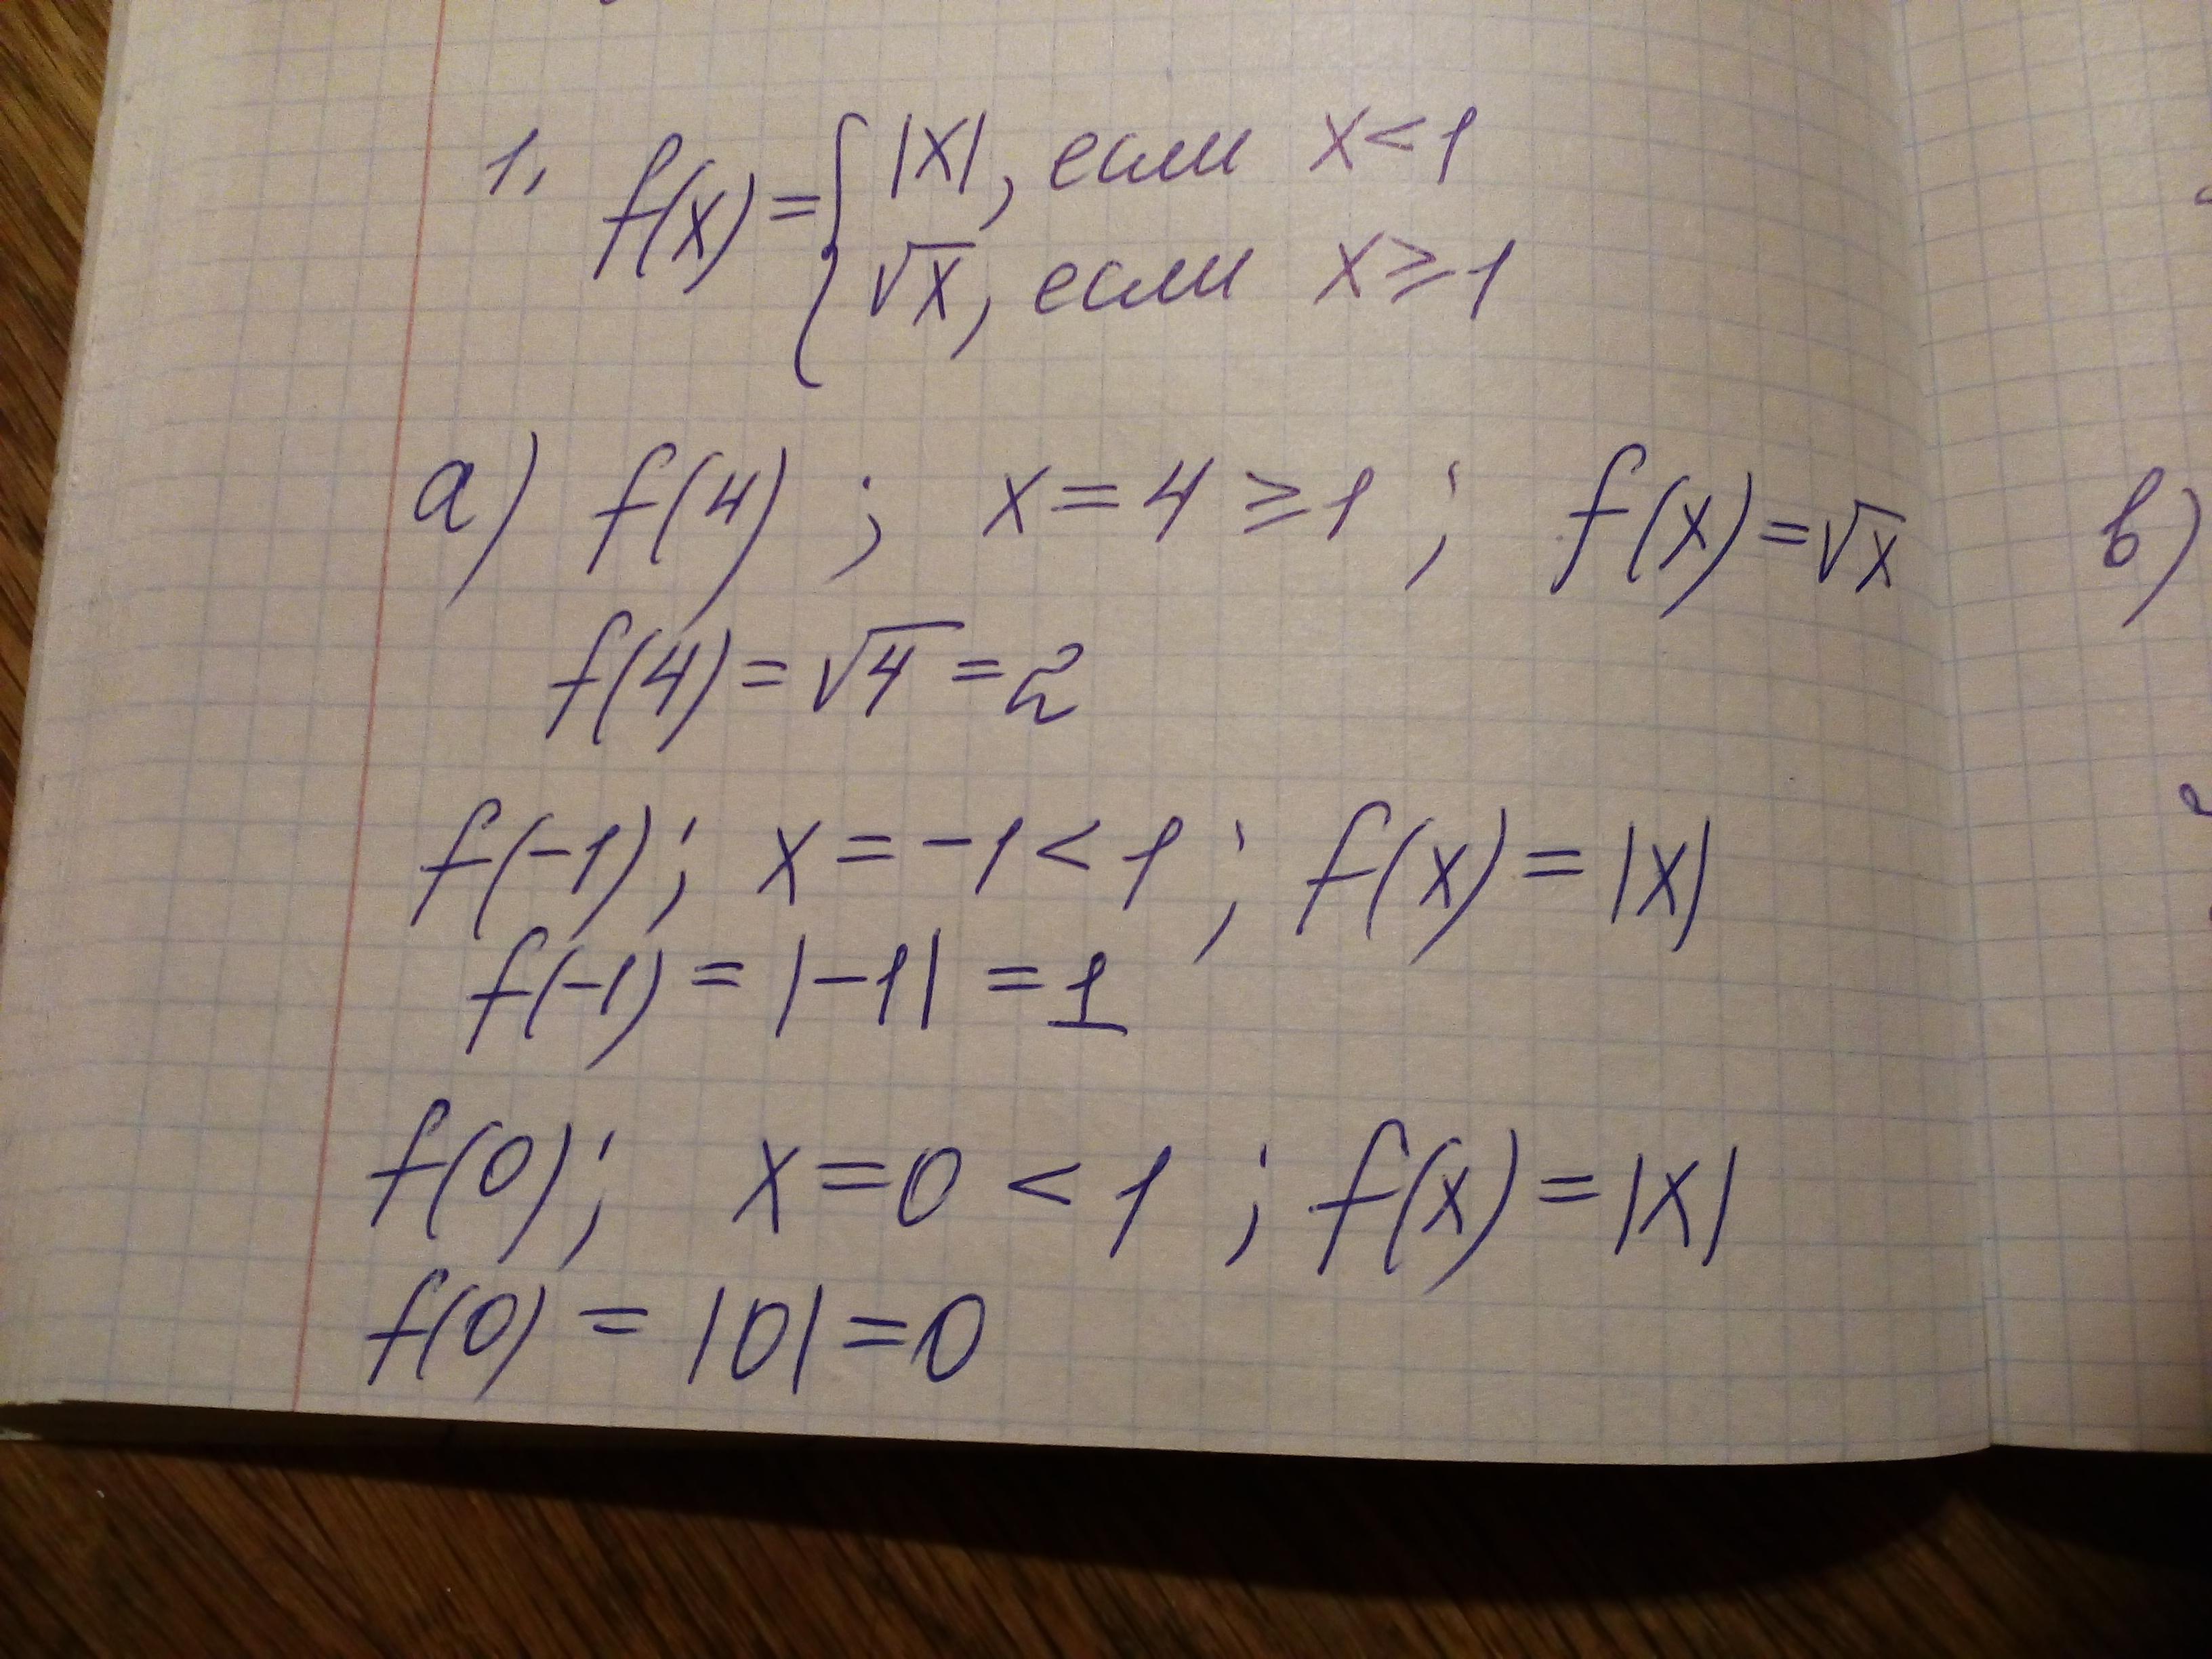 1, f(x) = { |x|, если x < 1
√x, если x ≥ 1
а) f(4) ; x = 4 ≥ 1 ; f(x) = √x
f(4) = √4 = 2
f(-1); x = -1 < 1 ; f(x) = |x|
f(-1) = |-1| = 1
f(0); x = 0 < 1 ; f(x) = |x|
f(0) = |0| = 0
в)